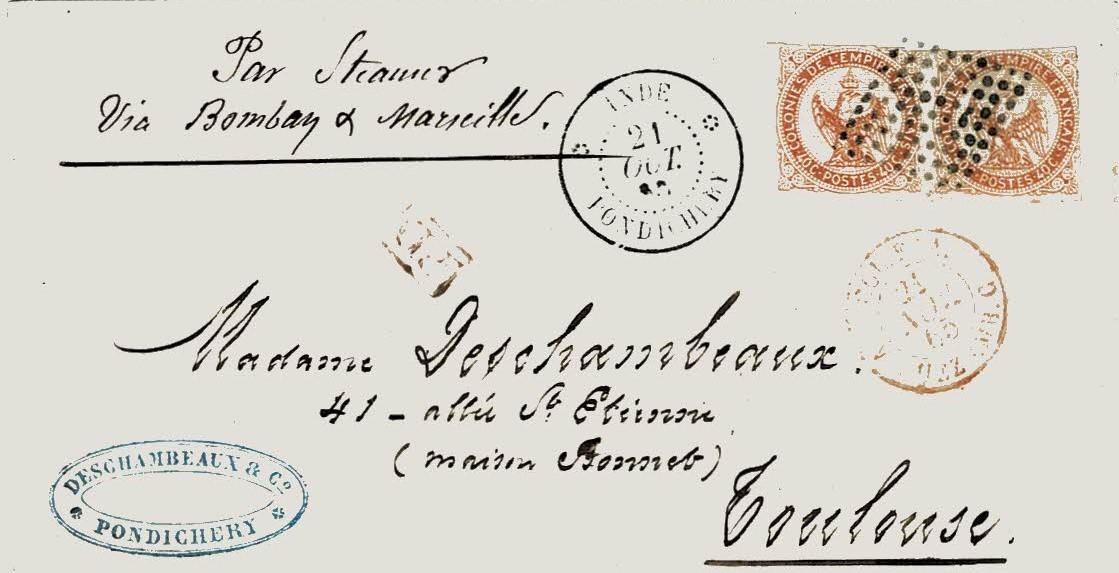 Par Steamer
Via Bombay & Marseille.
INDE
21
OCT.
PONDICHERY
COLONIES DE L'EMPIRE FRANÇAIS
40C. POSTES 40C.
COLONIES DE L'EMPIRE FRANÇAIS
40C. POSTES 40C.
Madame Deschambeaux.
41 - allée St. Etienne
(maison Bonnet)
Toulouse.
DESCHAMBEAUX & Co
PONDICHERY